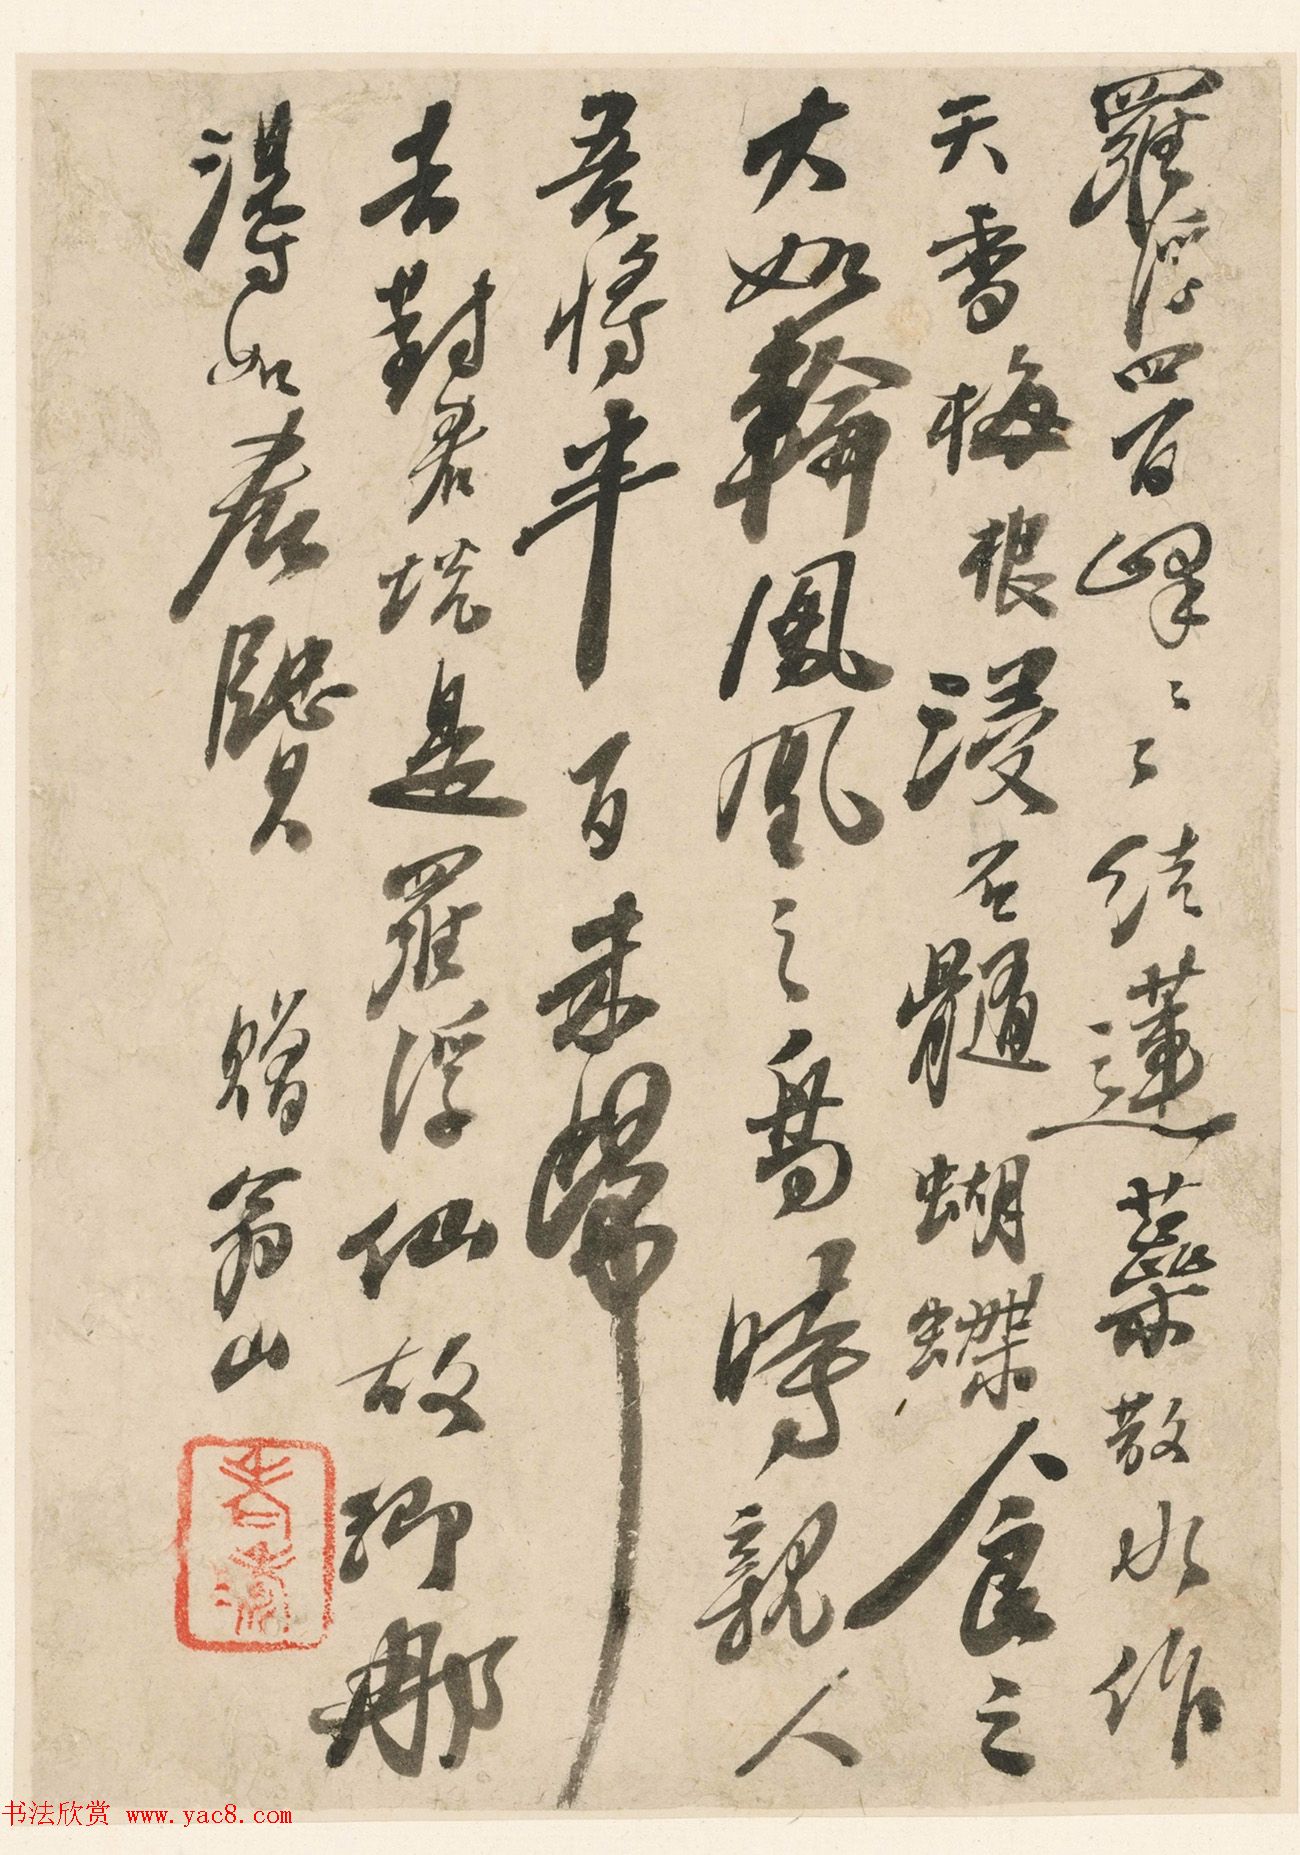 羅浮四百峰〻〻結蓮蕊散水作
天香梅根浸石髓蝴蝶食之
大如輪鳳凰之裔時親人
吾將半百未歸
去對君恍是羅浮仙故鄉那
得如君賢　贈翁山
书法欣赏 www.yac8.com